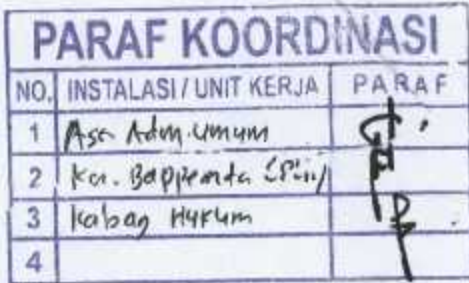 PARAF KOORDINASI
NO. INSTALASI / UNIT KERJA PARAF
1 Ass Adm. Umum
2 Ka. Bappenda
3 Kabag Hukum
4